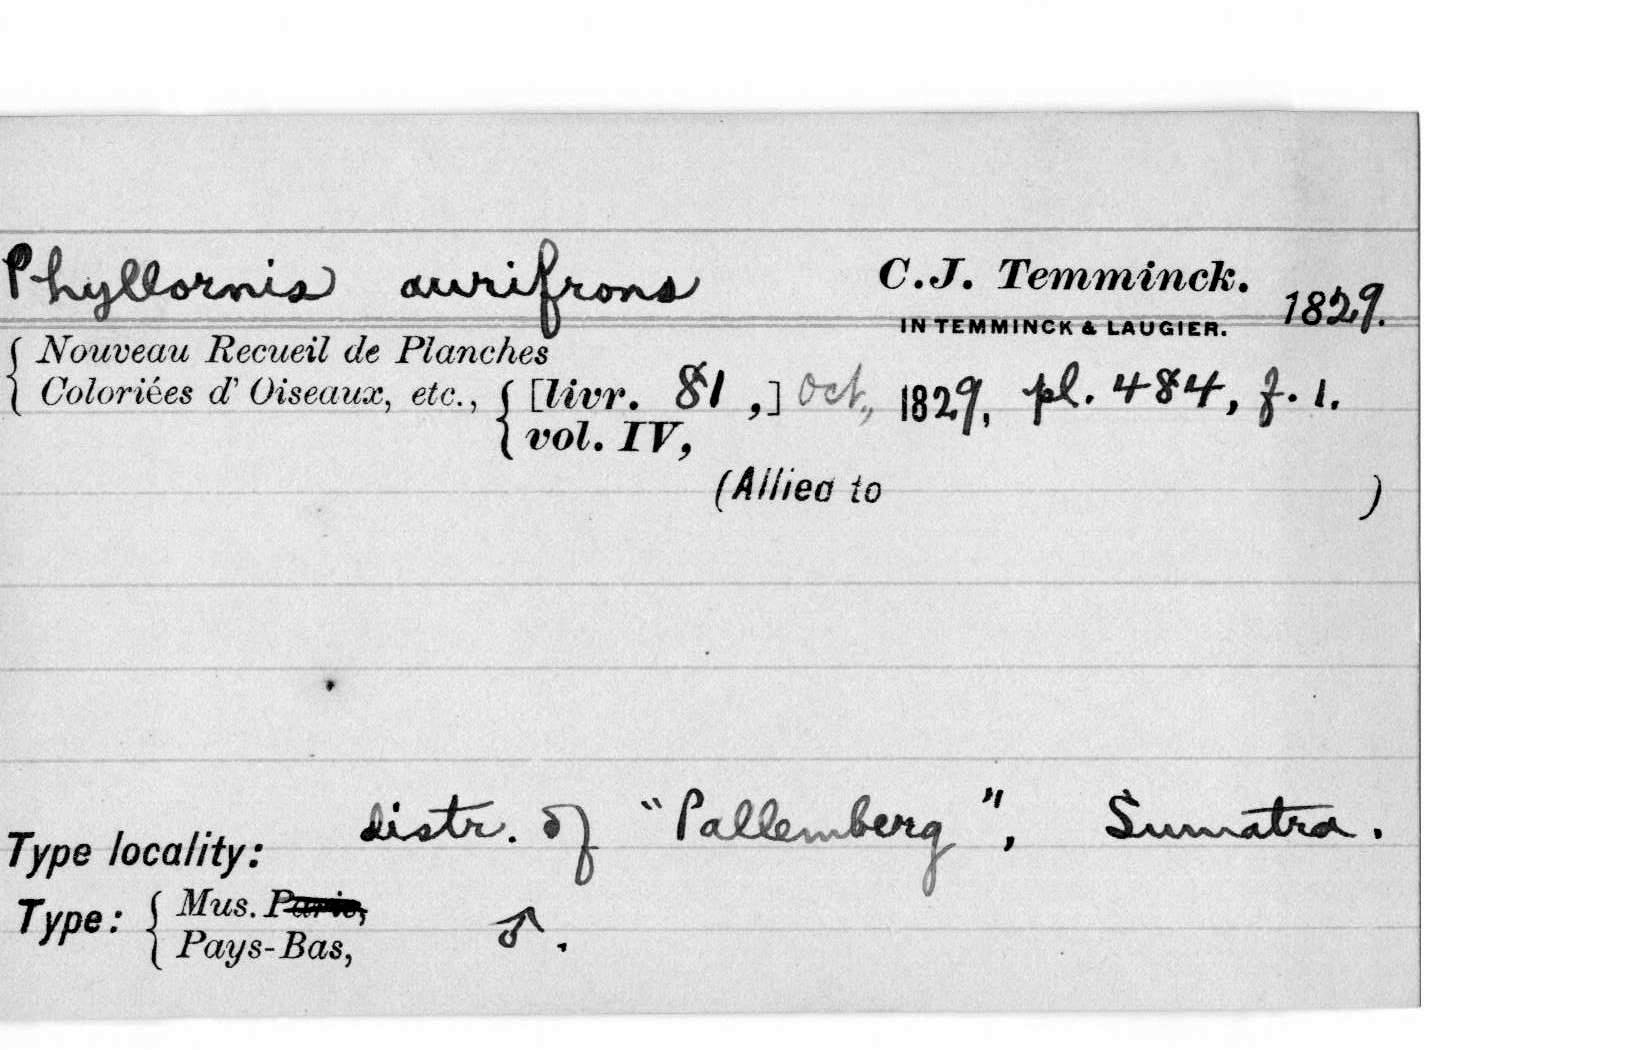 Phyllornis aurifrons C.J. Temminck. 1829.
IN TEMMINCK & LAUGIER.
{ Nouveau Recueil de Planches
Coloriées d' Oiseaux, etc., { [livr. 81 ,] Oct., 1829, pl. 484, f. 1.
vol. IV,
(Allied to )
Type locality: distr. of "Pallemberg", Sumatra.
Type: { Mus. Paris, ♂.
Pays-Bas,